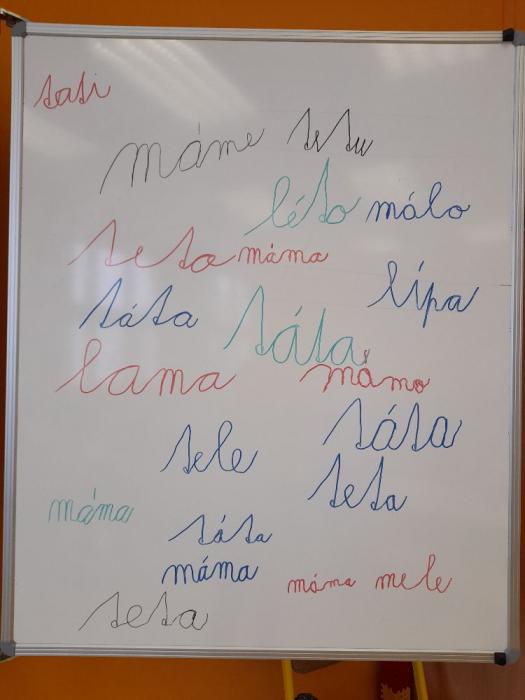 tati
máme tetu
léto málo
teta máma
lípa
táta táta
lama mámo
táta
tele
teta
máma
táta
máma
máma mele
teta